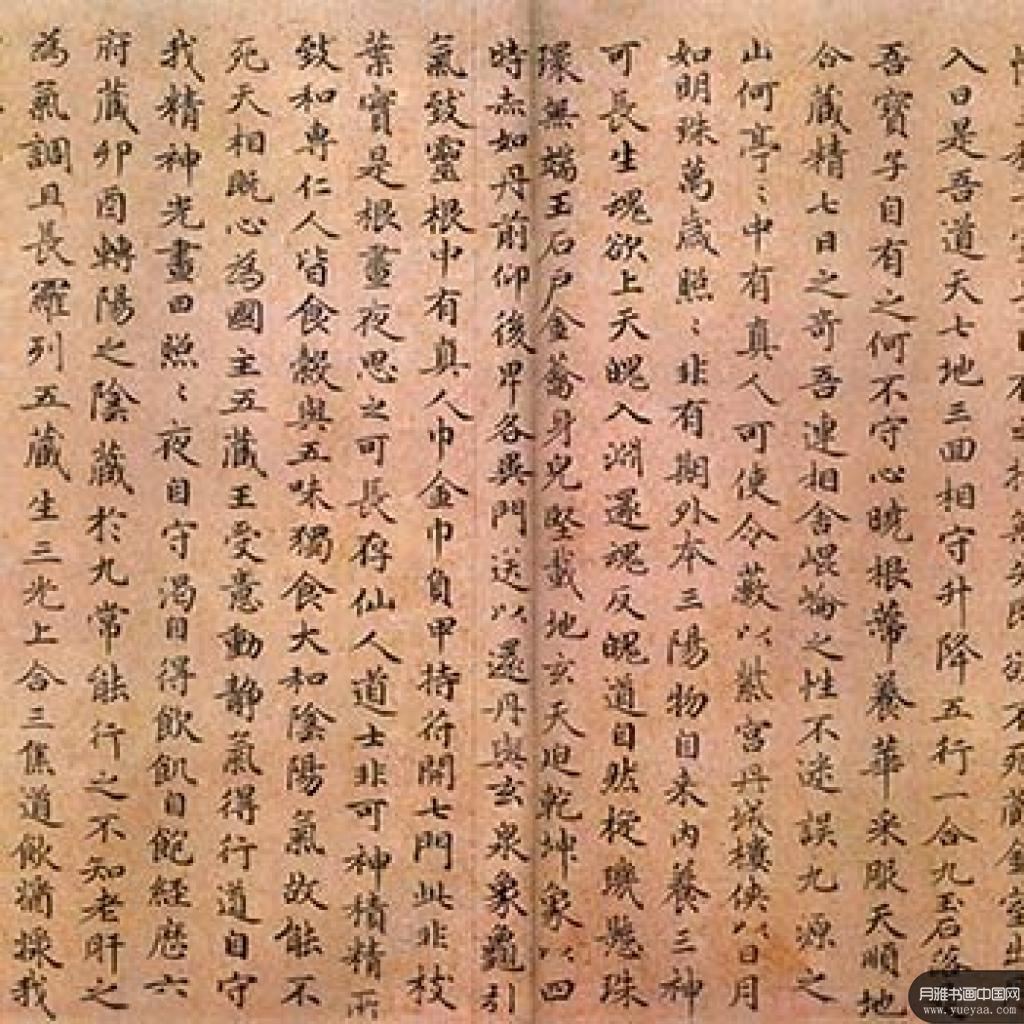 入日是吾道天七地三回相守升降五行一合九玉石落
吾寶子自有之何不守心曉根蒂養華采服天順地
合藏精七日之奇吾連相舍崐崘之性不迷誤九源之
山何亭〻中有真人可使令蔽以紫宮丹城樓俠以日月
如明珠萬歲照〻非有期外本三陽物自来内養三神
可長生魂欲上天魄入淵還魂反魄道自然棙璣懸珠
環無端玉石戶金籥身皃堅載地玄天迫乾坤象以四
時赤如丹前仰後卑各異門送以還丹與玄泉象龜引
氣致靈根中有真人巾金巾負甲持符開七門此非枝
葉實是根晝夜思之可長存仙人道士非可神積精所
致和専仁人皆食榖與五味獨食大和陰陽氣故能不
死天相既心為國主五藏王受意動静氣得行道自守
我精神光晝日照〻夜自守渴自得飲飢自飽経歴六
府藏卯酉轉陽之陰藏於九常能行之不知老肝之
為氣調且長羅列五藏生三光上合三焦道飲漿我
月雅书画中国网
www.yueyaa.com